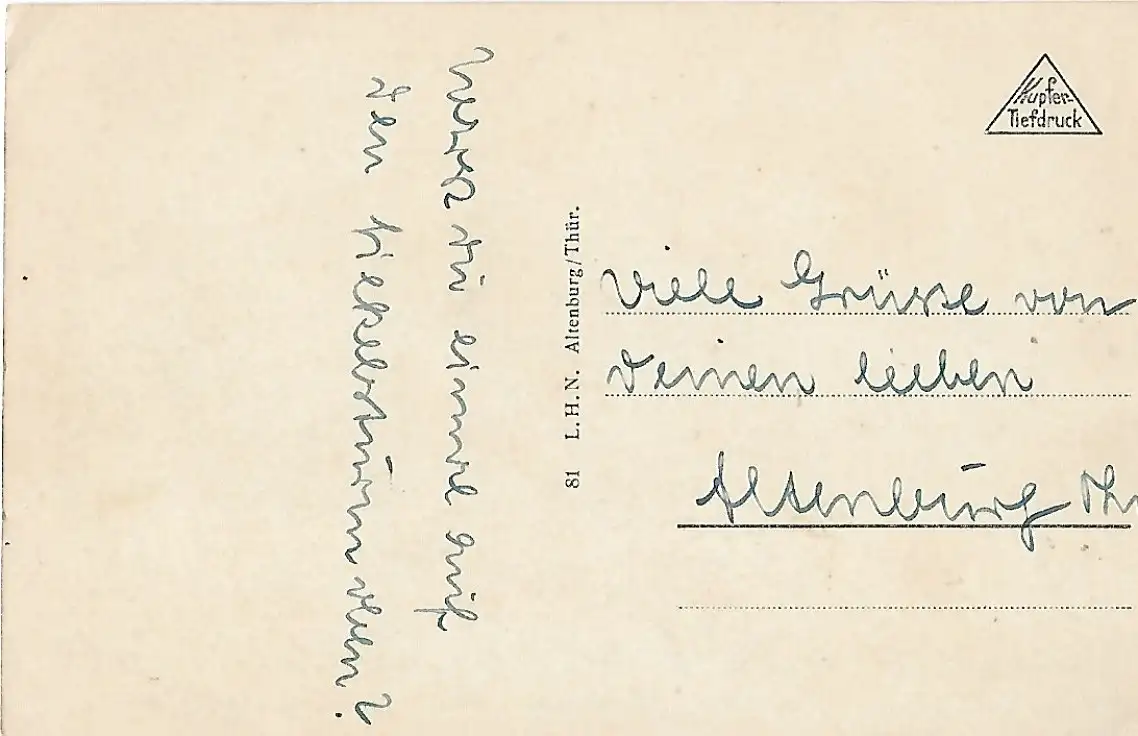 Kupfer-
Tiefdruck
du einmal auf
den
81 L. H. N. Altenburg/Thür.
Viele Grüße von
Deinen lieben
Altenburg Th